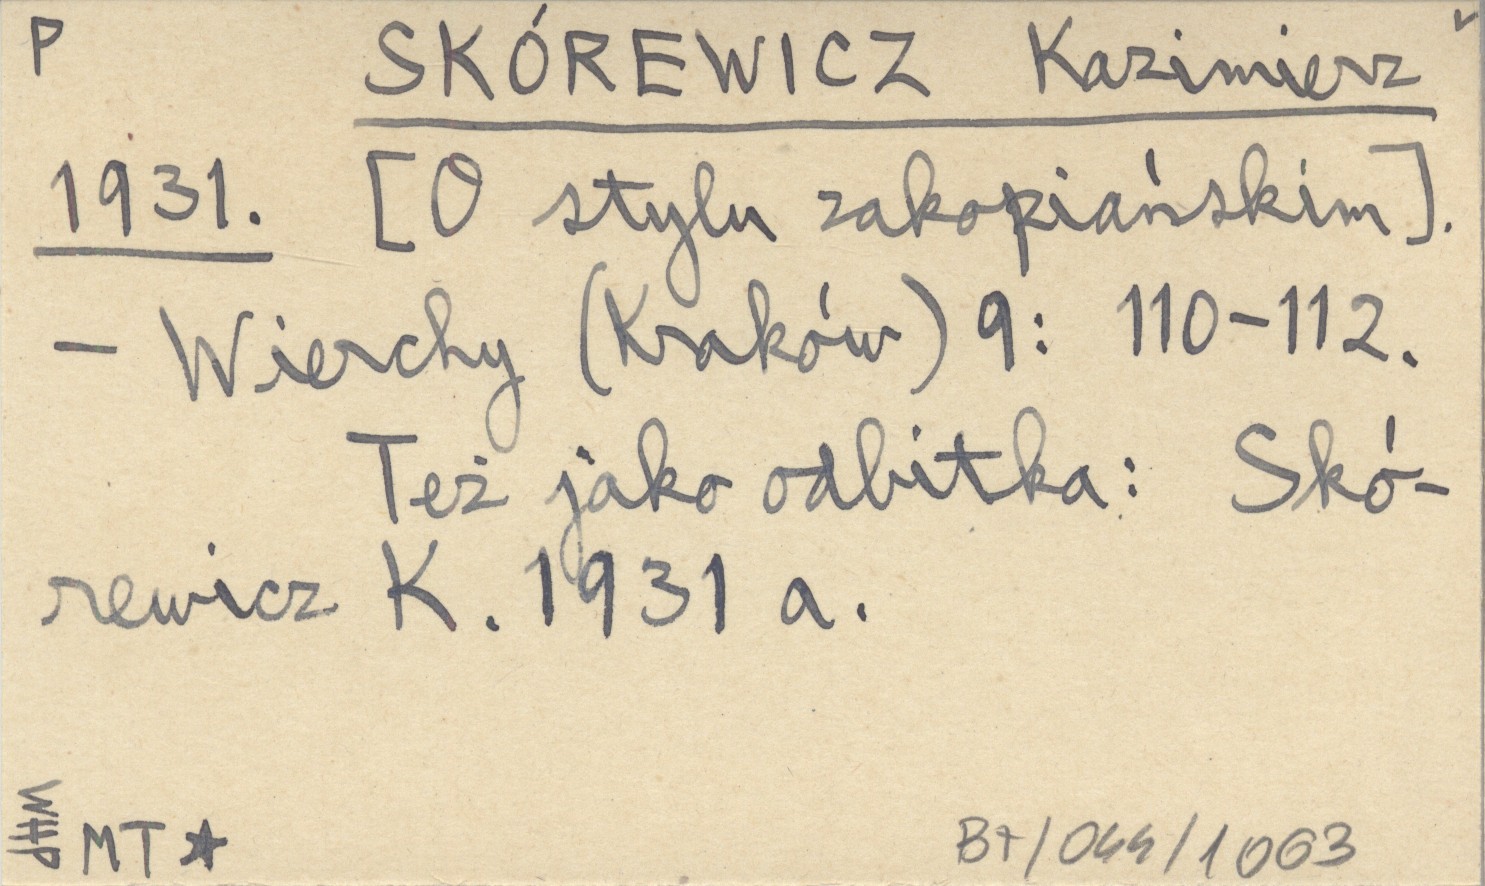 P SKÓREWICZ Kazimierz
1931. [O stylu zakopiańskim].
- Wierchy (Kraków) 9: 110-112.
Też jako odbitka: Skó-
rewicz K. 1931 a.
WHP MT ★ B7/044/1063